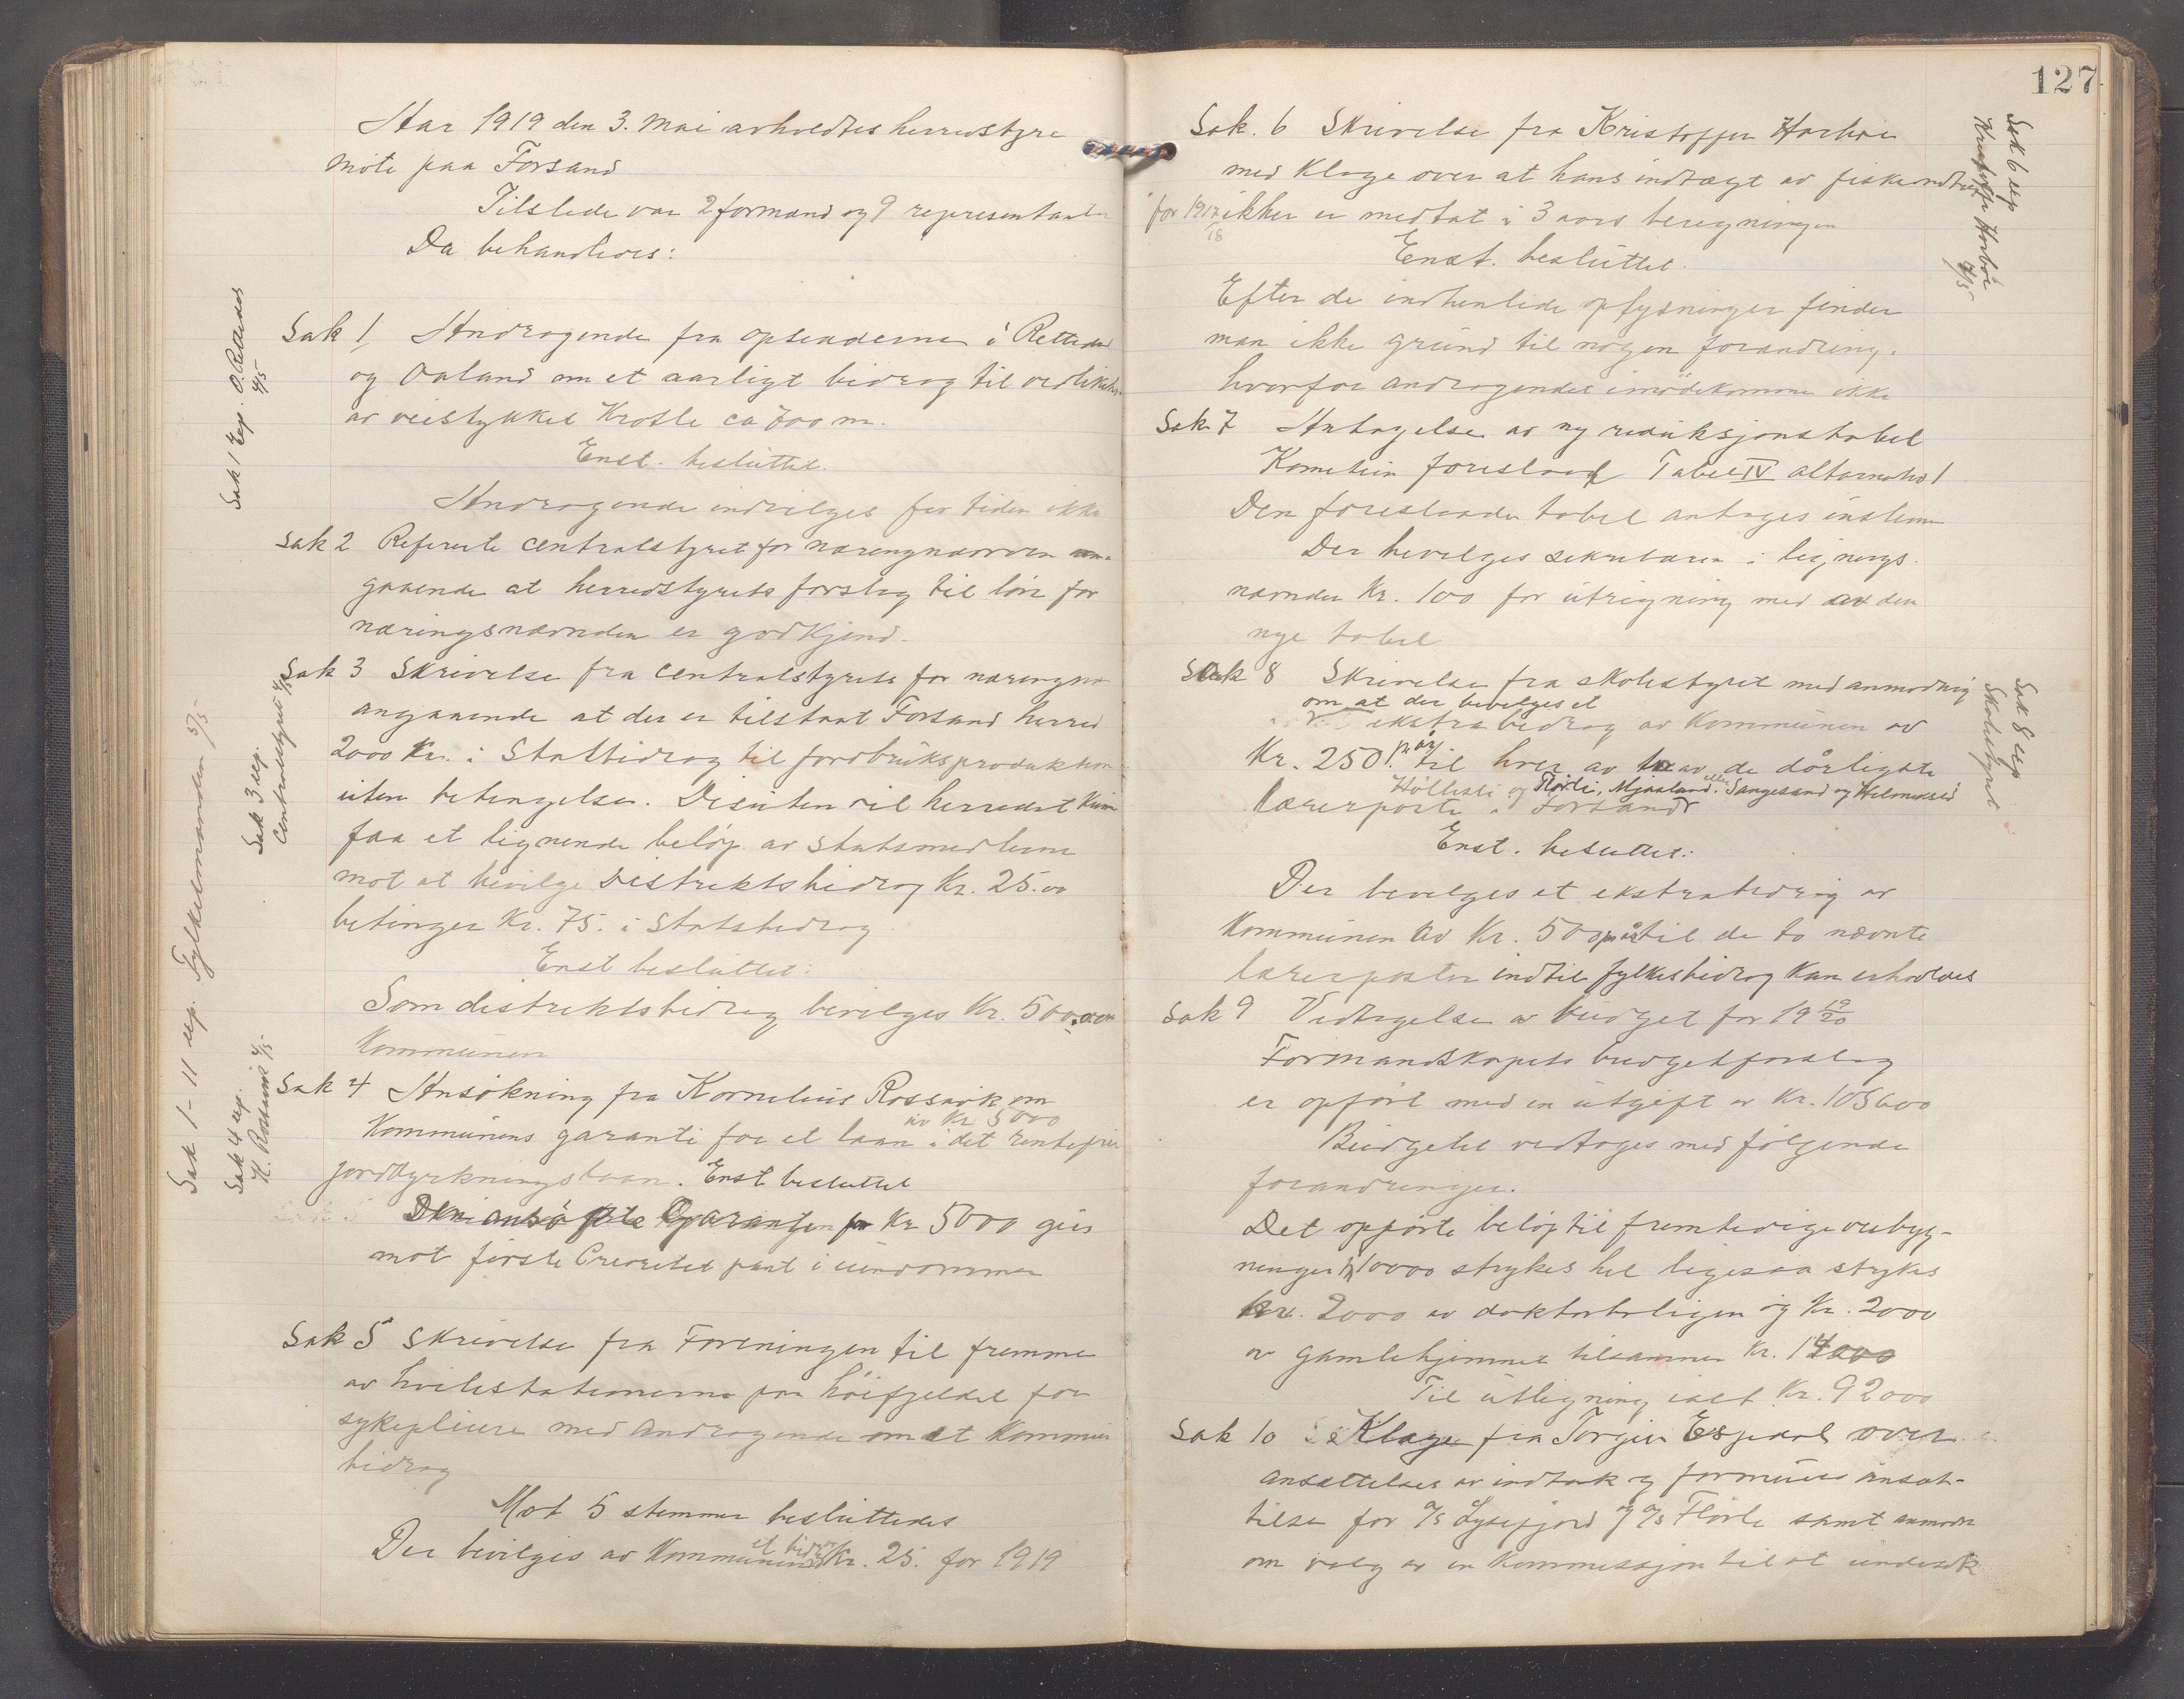 Aar 1919 den 3. Mai avholdtes herredstyre
møte paa Forsand
Tilstede var 2 formænd og 9 representanter
Da behandledes:
Sak 1 Andragende fra opsidderne i Rettedal
og Oaland om et aarligt bidrag til vedlikehold
av veistykket Krotle ca 700 m.
Enst. besluttet.
Andragende indvilges for tiden ikke
Sak 2 Refererte centralstyret for næringsnævnden an-
gaaende at herredstyrets forslag til løn for
næringsnævnden er godkjend.
Sak 3 Skrivelse fra centralstyrets for næringsnæ
angaaende at der er tilstaat Forsand herred
2000 Kr. i Statbidrag til jordbruksproduktion
uten betingelse. Desuten vil herredet kun
faa et lignende beløp av statsmedlerne
mot at bevilge Distriktsbidrag Kr. 25.00
betinger Kr. 75. i Statsbidrag
Enst besluttet:
Som distriktsbidrag bevilges Kr. 500.00 av
Kommunen
Sak 4 Ansøkning fra Kornelius Rossavik om
av Kr 5000
Kommunens garanti for et laan i det rentefrie
jorddyrkningslaan. Enst besluttet
Den ansøgte Garantien for Kr 5000 gives
mot første Prioritet pant i eiendommen
Sak 5 Skrivelse fra Foreningen til fremme
av hvilestationerne paa høifjeldet for
sykepleiere med Andragende om et Kommune
bidrag
Mot 5 stemmer besluttedes
et bidrag
Der bevilges av Kommunen Kr. 25. for 1919
Sak 1 Exp. O. Rettedal
4/5
Sak 3 exp.
Centralstyret 4/5
Sak 4 exp.
K. Rossavik 4/5
Sak 1-11 exp. Fylkesmanden 5/5
127
Sak. 6 Skrivelse fra Kristoffer Haabøe
med Klage over at hans indtægt av fiskeindtægt
for 1917/18 ikke er medtat i 3 aars beregningen
Enst. besluttet.
Efter de indhentede oplysninger finder
man ikke grund til nogen forandring.
hvorfor andragendet imødekommes ikke
Sak 7 Antagelse av ny reduksjonstabel
Komiteen foreslaar Tabel IV alternativ 1
Den foreslaade tabel antages enstemmi
Der bevilges sekretæren i lignings-
nævnden Kr. 100 for utregning med av den
nye tabel
Sak 8 Skrivelse fra skolestyret med anmodning
om at der bevilges et
ekstrabidrag av Kommunen av
Kr. 250. pr. år til hver av to av de dårligste
Høllesli og Flørli, Mjaaland eller Sangesand og Helmikstøl
lærerposter i Forsand
Enst. besluttet:
Der bevilges et ekstrabidrag av
Kommunen av Kr. 50 pr år til de to nævnte
lærerposter indtil fylkesbidrag kan erholdes
Sak 9 Vedtagelse av budget for 19 19/20
Formandskapets budgetforslag
er opført med en utgift av Kr. 103600
Budgetet vedtages med følgende
forandringer.
Det opførte beløp til fremtidige veibyg-
ninger Kr 10000 strykes hel ligesaa strykes
Kr. 2000 av doktorboligen og Kr. 2000
av gamlehjemmet tilsammen Kr. 14000
Til utligning ialt Kr. 92000
Sak 10 Klage fra Torger Espedal over
ansættelser av indtæk og formues ansæt-
telse for A/S Lysefjord og A/S Flørli samt anmodn
om valg av en Kommission til at undersøk
Sak 6 exp
Kristoffer Haabøe
4/5
Sak 8 exp
Skolestyret